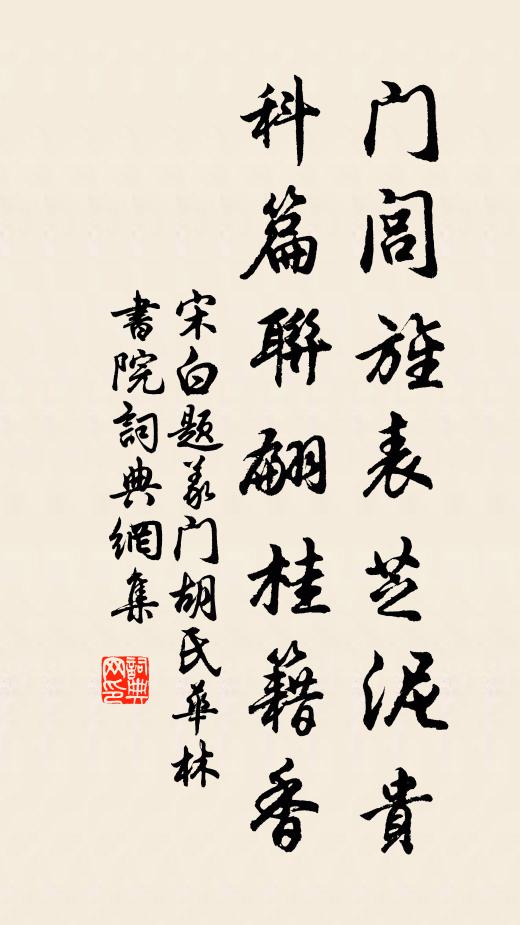 门闾旌表芝泥貴
科篇聯翩桂籍香
宋白题义门胡氏華林
書院詞典網集
詞典网印